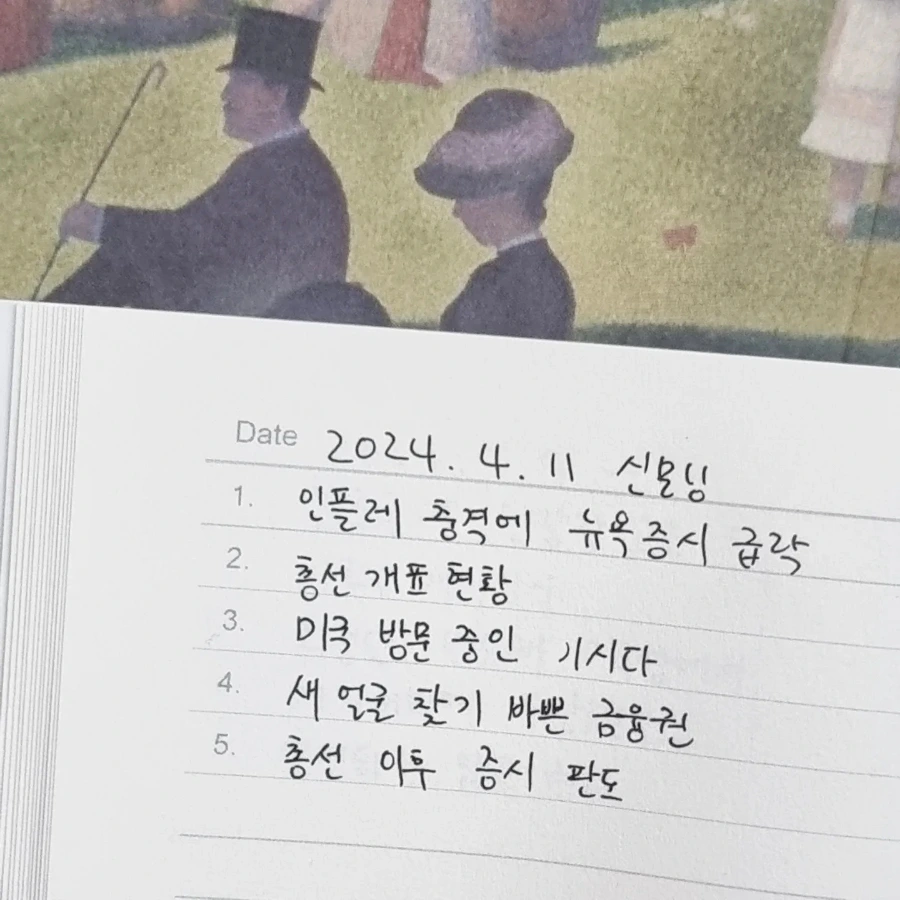 Date 2024. 4. 11 신모닝
1. 인플레 충격에 뉴욕증시 급락
2. 총선 개표 현황
3. 미국 방문 중인 기시다
4. 새 얼굴 찾기 바쁜 금융권
5. 총선 이후 증시 판도